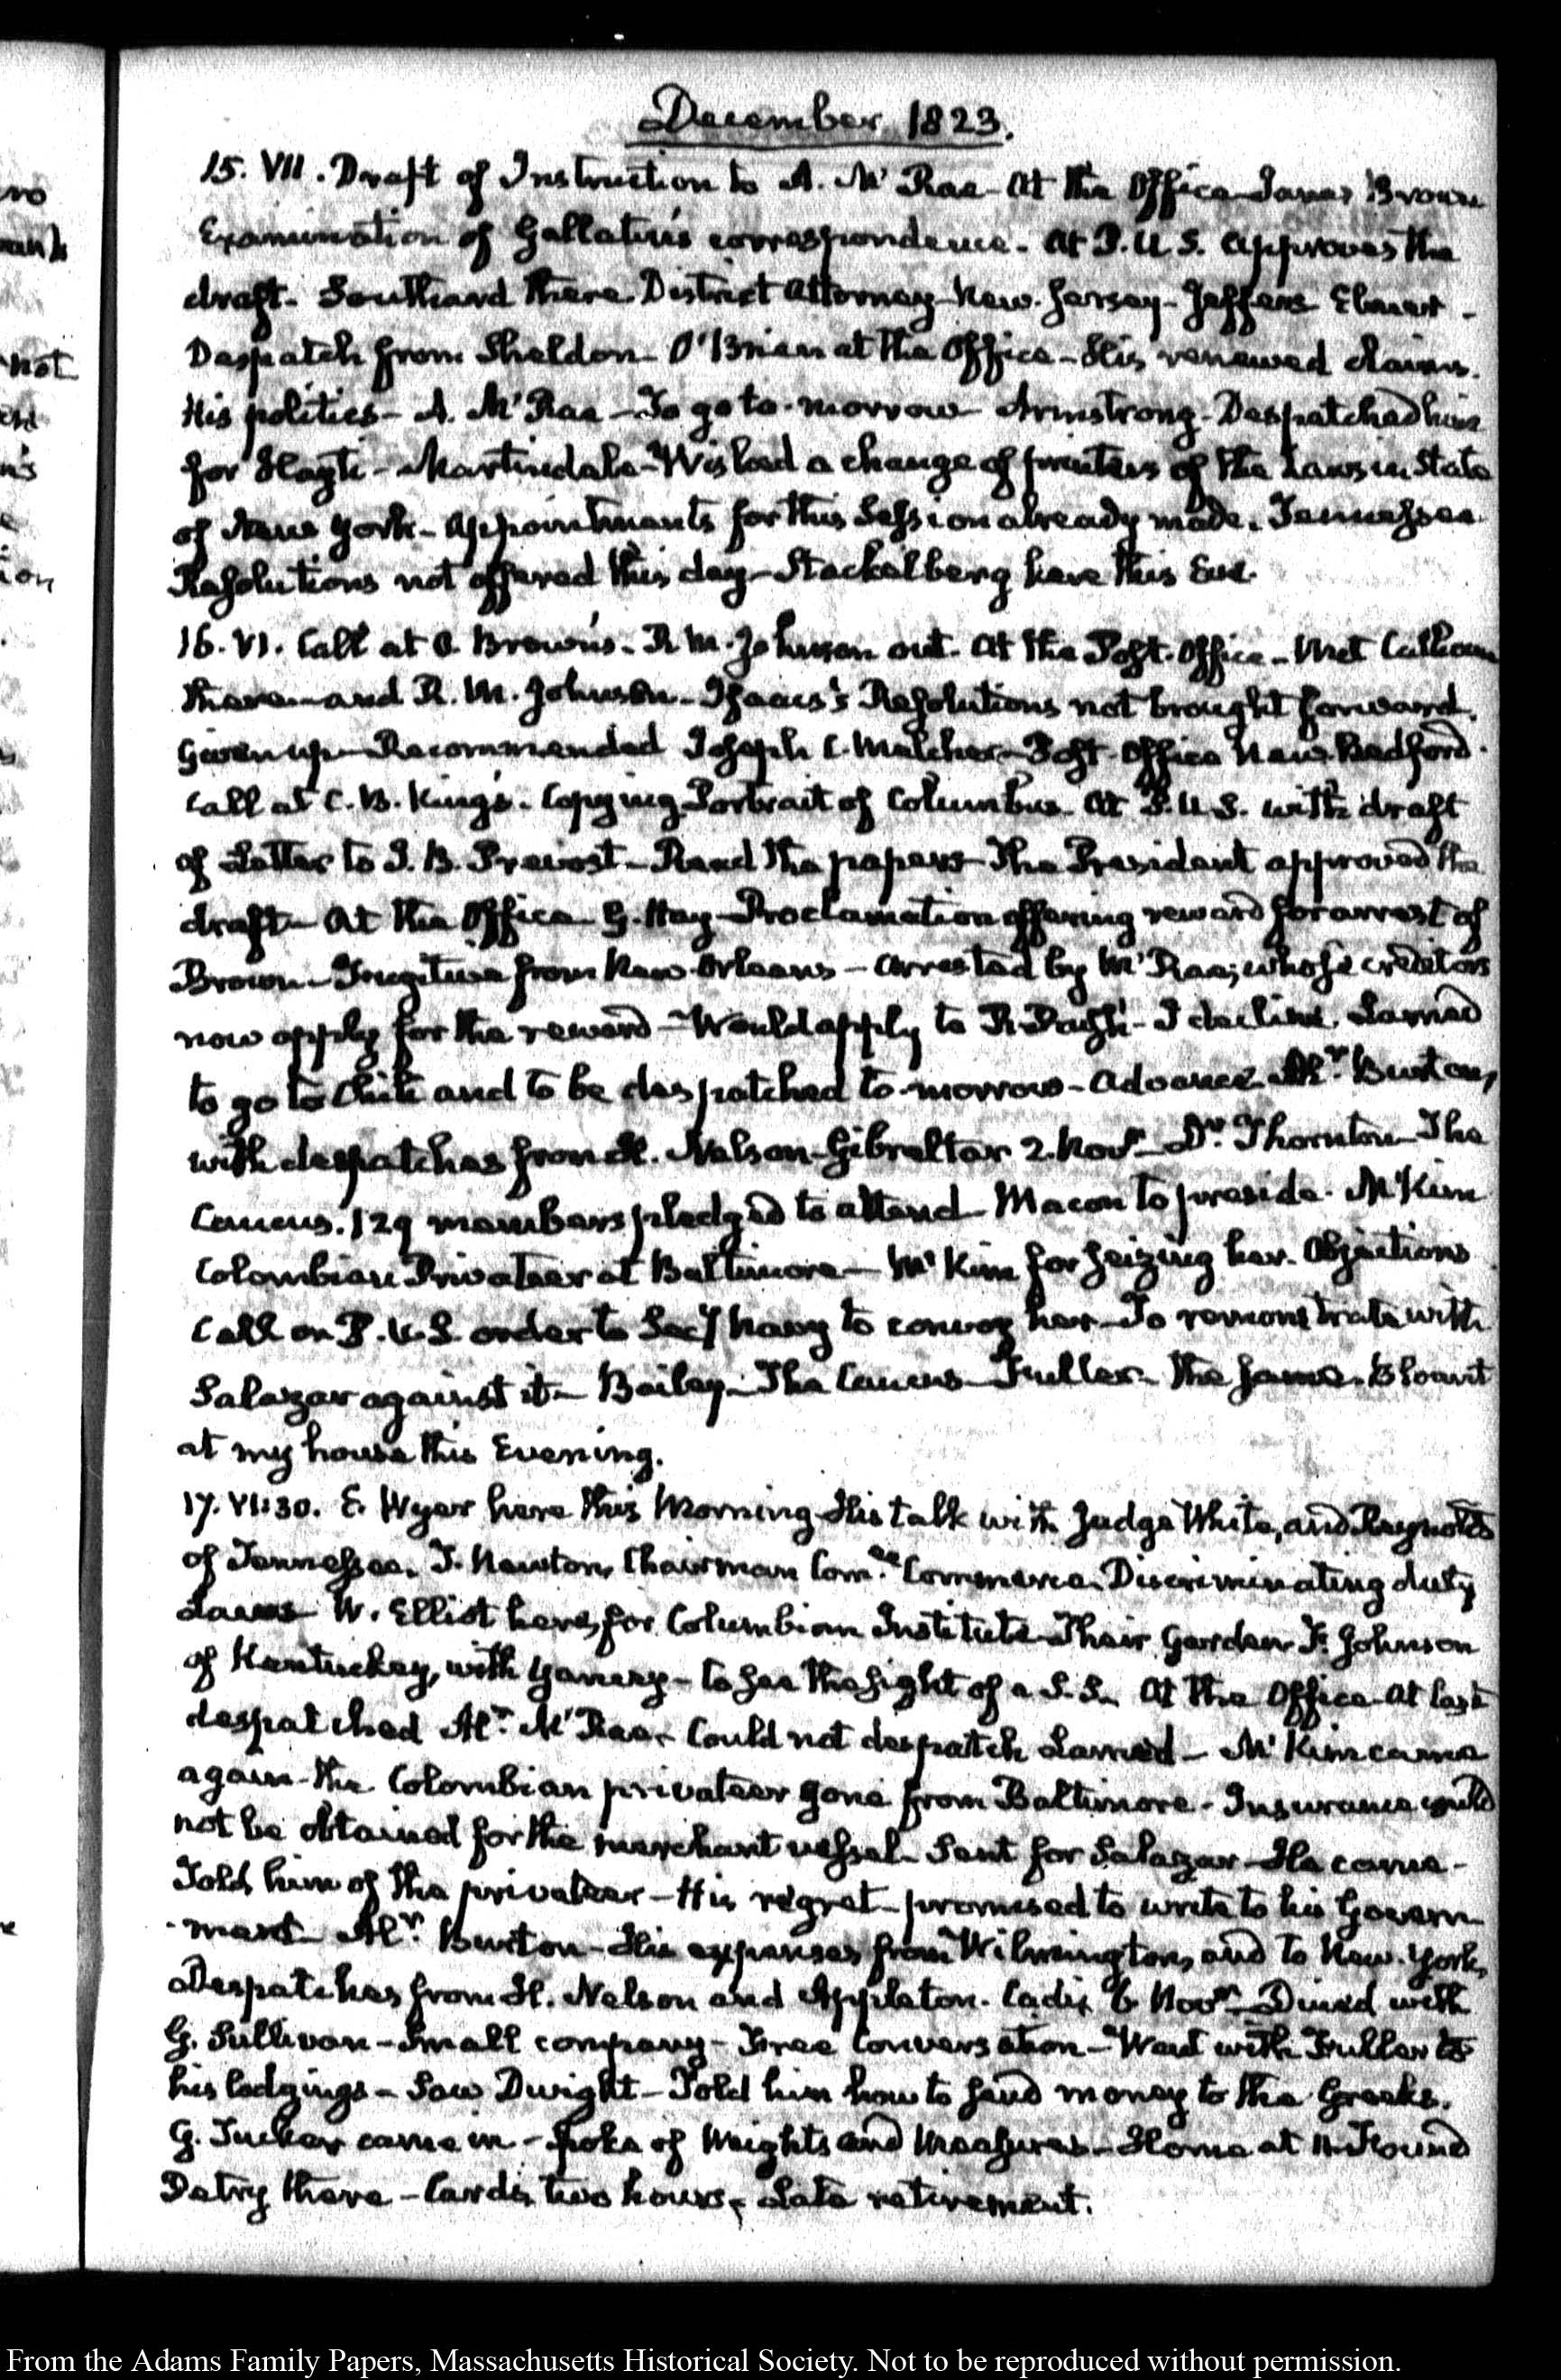 December 1823.
15. VII. Draft of Instruction to A. McRae - At the Office James Brown
Examination of Gallatin's correspondence. At P.U.S. approves the
draft. Southard there. District Attorney New-Jersey - Jeffers Elmer -
Despatch from Sheldon - O'Brien at the Office - His renewed claims.
His politics - A. McRae - To go to-morrow - Armstrong - Despatched him
for Hayti - Martindale - Wished a change of printers of the Laws in State
of New York - Appointments for this Session already made. Tennessee
Resolutions not offered this day - Stackelberg here this Eve.
16. VI. Call at Brown's. R. M. Johnson out. At the Post-Office - Met Calhoun
there - and R. M. Johnson - Isacks's Resolutions not brought forward.
Given up - Recommended Joseph C. Melcher - Post-Office New-Bedford.
Call at C. B. King's. Copying Portrait of Columbus. At P.U.S. with draft
of Letter to J. B. Prevost - Read the papers - The President approved the
draft - At the Office - G. Hay - Proclamation offering reward for arrest of
Brown - Fugitive from New-Orleans - Arrested by McRae; whose creditors
now apply for the reward - Would apply to R. Rush - I decline. Larned
to go to Chili and to be despatched to-morrow - Advance. Mr. Burton,
with despatches from H. Nelson - Gibraltar 2. Novr - Dr. Thornton - The
Caucus. 129 members pledged to attend - Macon to preside. McKim
Colombian Privateer at Baltimore - McKim for seizing her. Objections
Call on P.U.S. order to Secy Navy to convoy her - To remonstrate with
Salazar against it - Bailey - The Caucus - Fuller - the same. Blount
at my house this Evening.
17. VI:30. E. Wyer here this Morning - His talk with Judge White, and Reynolds
of Tennessee. T. Newton, Chairman Comee Commerce. Discriminating duty
Laws - W. Elliot here, for Columbian Institute - Their Garden F. Johnson
of Kentucky, with Yancey - to see the sight of a S.S. At the Office - At last
despatched Mr. McRae - Could not despatch Larned - McKim came
again - the Colombian privateer gone from Baltimore - Insurance could
not be obtained for the merchant vessel - Sent for Salazar - He came -
Told him of the privateer - His regret - promised to write to his Govern-
-ment - Mr. Burton - His expenses from Wilmington, and to New-York,
Despatches from H. Nelson and Appleton. Cadiz 6 Novr - Dined with
G. Sullivan - Small company - Free Conversation - Went with Fuller to
his lodgings - Saw Dwight - Told him how to send money to the Greeks.
G. Tucker came in - spoke of Weights and Measures - Home at 11. Found
Petry there - Cards, two hours, Late retirement.
From the Adams Family Papers, Massachusetts Historical Society. Not to be reproduced without permission.